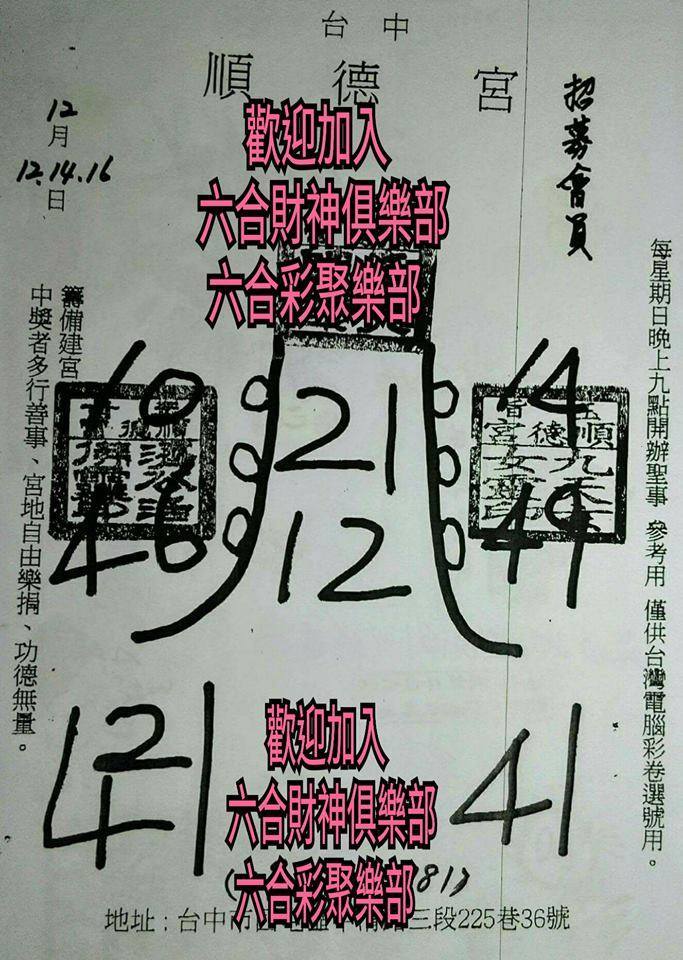 台中
順德宮
招募會員
12
月
12.14.16
日
歡迎加入
六合財神俱樂部
六合彩聚樂部
每星期日晚上九點開辦聖事 參考用 僅供台灣電腦彩卷選號用。
籌備建宮
中獎者多行善事、宮地自由樂捐、功德無量。
10
21
14
46
12
49
2
41
41
歡迎加入
六合財神俱樂部
六合彩聚樂部
81)
地址:台中市
三段225巷36號